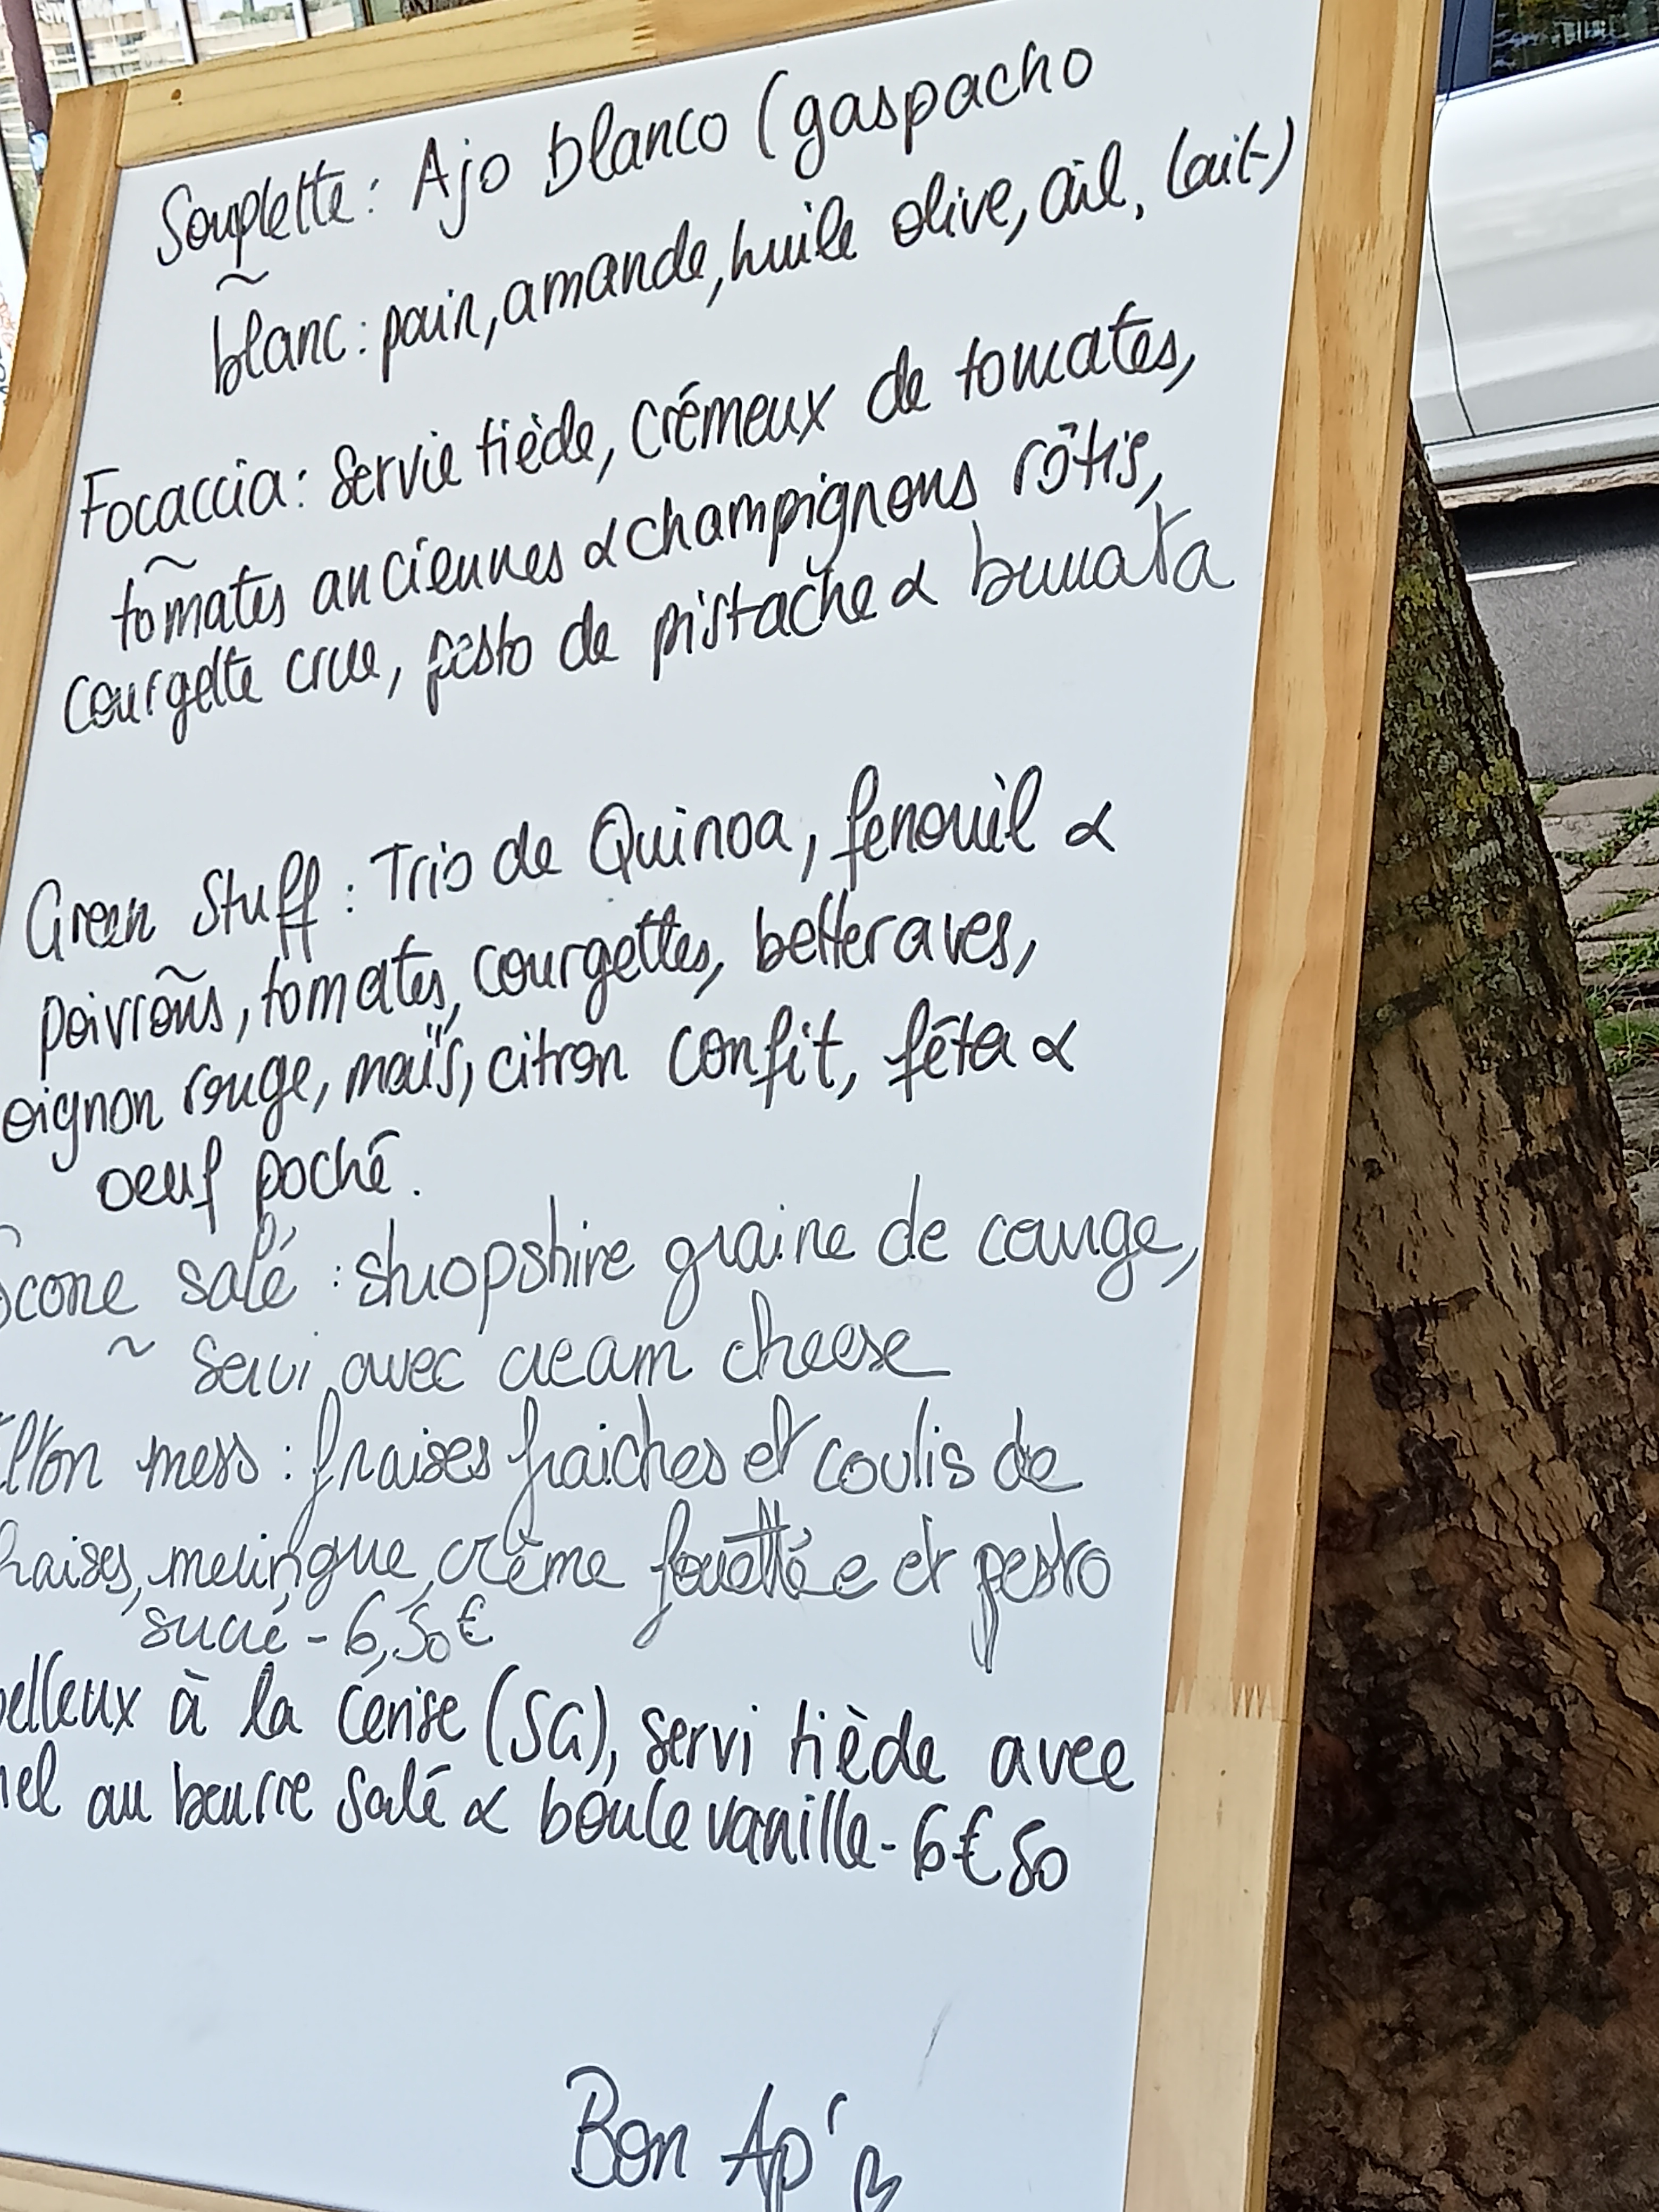 Souplette: Ajo blanco (gaspacho
~
blanc: pain, amande, huile olive, ail, lait)
Focaccia: Servie tiède, Crémeux de tomates,
~
tomates anciennes & champignons rôtis,
courgette crue, pesto de pistache & burrata
Green Stuff: Trio de Quinoa, fenouil &
~
poivrons, tomates, courgettes, betteraves,
oignon rouge, maïs, citron confit, féta &
oeuf poché.
Scone salé : shropshire graine de courge,
~ servi avec cream cheese
mess : fraises fraiches et coulis de
fraises, meringue, crème fouettée et pesto
sucré - 6,50€
elleux à la Cerise (SG), servi tiède avec
el au beurre salé & boule vanille - 6€50
Bon Ap'